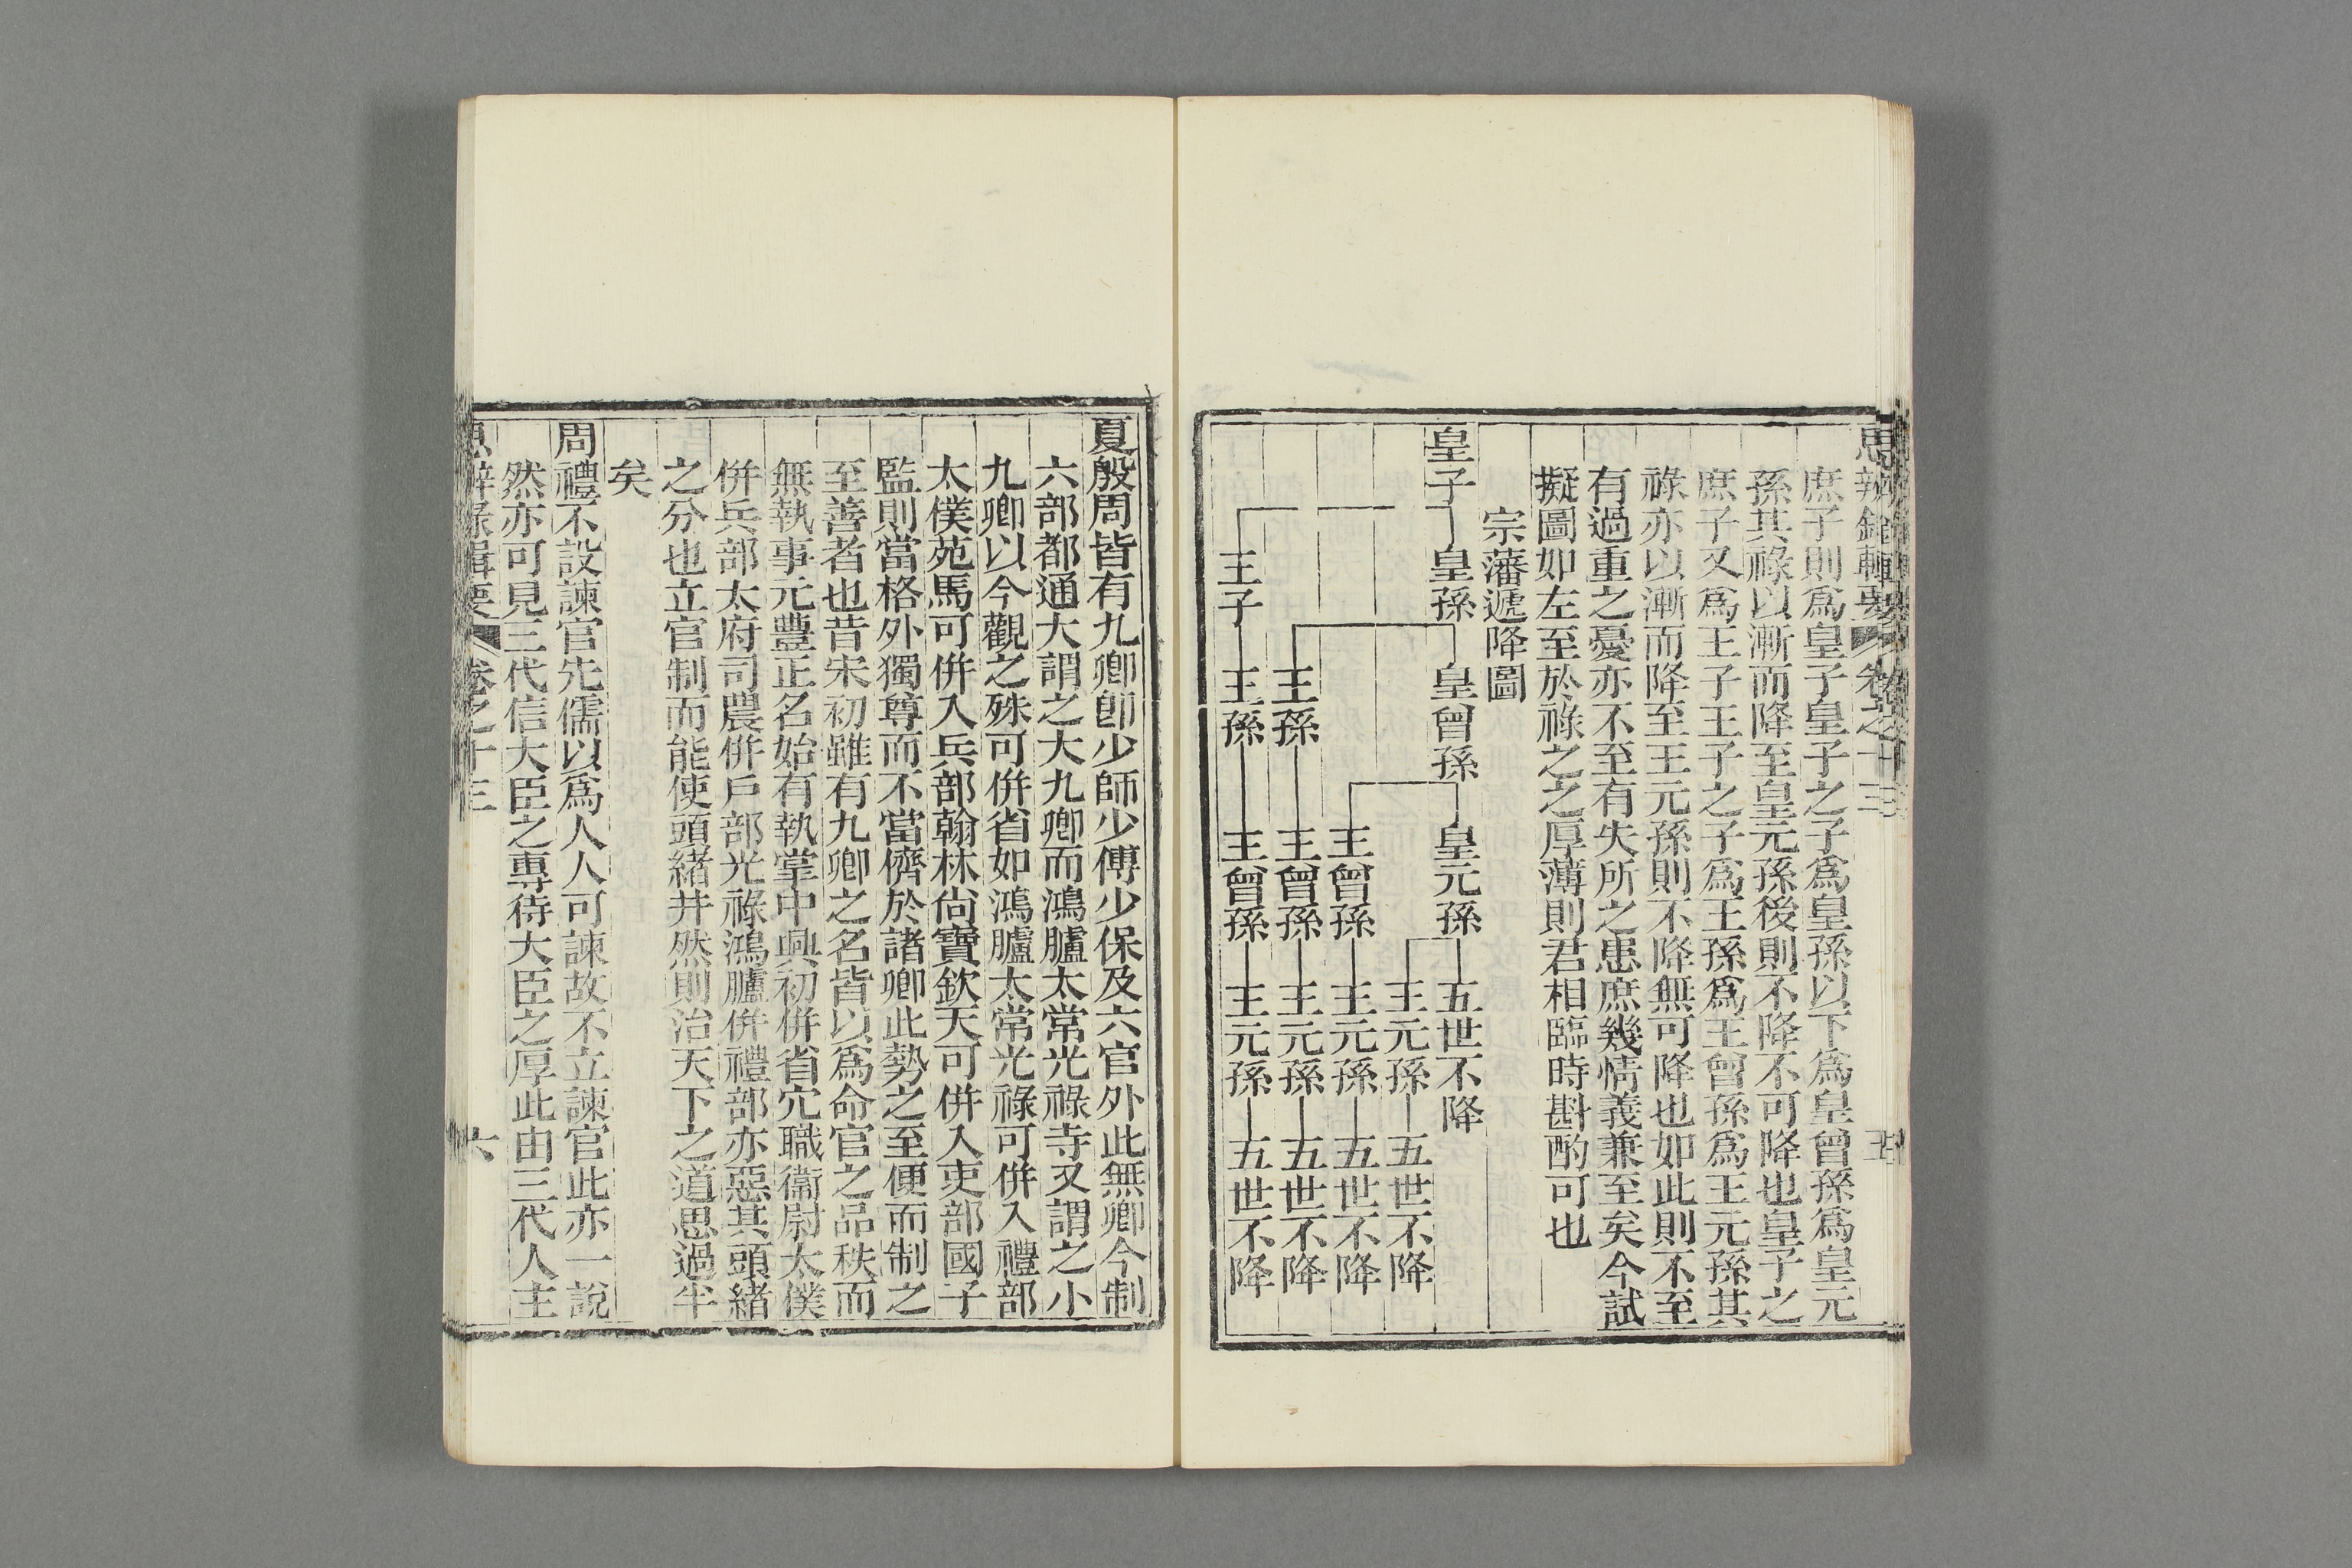 思辨錄輯要 卷之十三 五
庶子則爲皇子皇子之子爲皇孫以下爲皇曾孫爲皇元
孫其祿以漸而降至皇元孫後則不降不可降也皇子之
庶子又爲王子王子之子爲王孫爲王曾孫爲王元孫其
祿亦以漸而降至王元孫則不降無可降也如此則不至
有過重之憂亦不至有失所之患庶幾情義兼至矣今試
擬圖如左至於祿之之厚薄則君相臨時斟酌可也
宗藩遞降圖
皇子 皇孫 皇曾孫 皇元孫 五世不降
王元孫 五世不降
王曾孫 王元孫 五世不降
王孫 王曾孫 王元孫 五世不降
王子 王孫 王曾孫 王元孫 五世不降
夏殷周皆有九卿卽少師少傅少保及六官外此無卿今制
六部都通大謂之大九卿而鴻臚太常光祿寺又謂之小
九卿以今觀之殊可併省如鴻臚太常光祿可併入禮部
太僕苑馬可併入兵部翰林尚寶欽天可併入吏部國子
監則當格外獨尊而不當儕於諸卿此勢之至便而制之
至善者也昔宋初雖有九卿之名皆以爲命官之品秩而
無執事元豐正名始有執掌中興初併省宂職衞尉太僕
併兵部太府司農併戶部光祿鴻臚併禮部亦惡其頭緒
之分也立官制而能使頭緒井然則治天下之道思過半
矣
周禮不設諫官先儒以爲人人可諫故不立諫官此亦一說
然亦可見三代信大臣之專待大臣之厚此由三代人主
思辨錄輯要 卷之十三 六